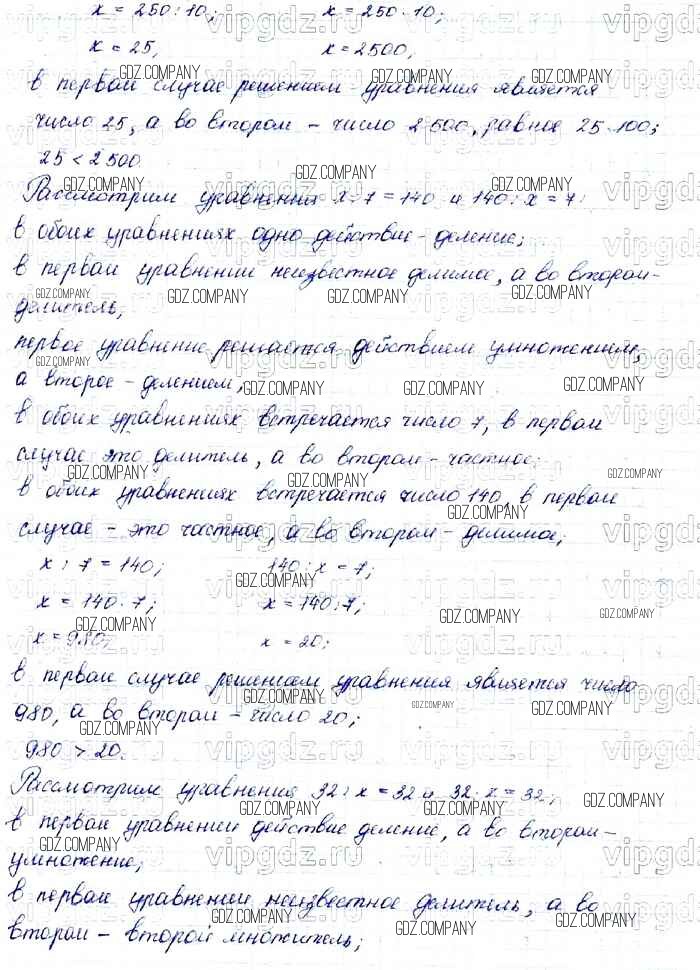 x = 250 : 10; x = 250 · 10;
x = 25, x = 2500,
в первом случае решением уравнения является
число 25, а во втором – число 2500, равное 25·100;
25 < 2500
Рассмотрим уравнения x : 7 = 140 и 140 : x = 7:
в обоих уравнениях одно действие – деление;
в первом уравнении неизвестное делимое, а во втором –
делитель,
первое уравнение решается действием умножением,
а второе – делением,
в обоих уравнениях встречается число 7, в первом
случае это делитель, а во втором – частное;
в обоих уравнениях встречается число 140, в первом
случае – это частное, а во втором – делимое;
x : 7 = 140; 140 : x = 7;
x = 140 · 7; x = 140 : 7;
x = 980; x = 20;
в первом случае решением уравнения является число
980, а во втором – число 20;
980 > 20.
Рассмотрим уравнения 32 : x = 32 и 32 · x = 32;
в первом уравнении действие деление, а во втором –
умножение;
в первом уравнении неизвестное делитель, а во
втором – второй множитель;
GDZ.COMPANY
vipgdz.ru